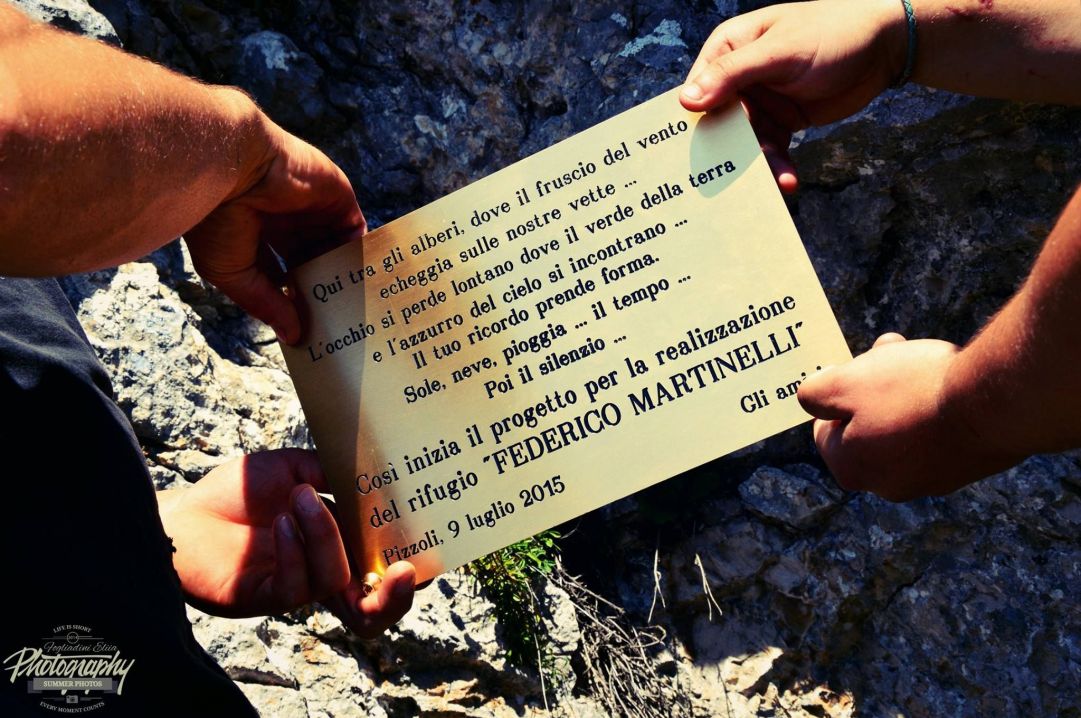 Qui tra gli alberi, dove il fruscio del vento
echeggia sulle nostre vette ...
L'occhio si perde lontano dove il verde della terra
e l'azzurro del cielo si incontrano ...
Il tuo ricordo prende forma.
Sole, neve, pioggia ... il tempo ...
Poi il silenzio ...
Così inizia il progetto per la realizzazione
del rifugio "FEDERICO MARTINELLI"
Gli amici
Pizzoli, 9 luglio 2015
LIFE IS SHORT
Photography
SUMMER PHOTOS
EVERY MOMENT COUNTS